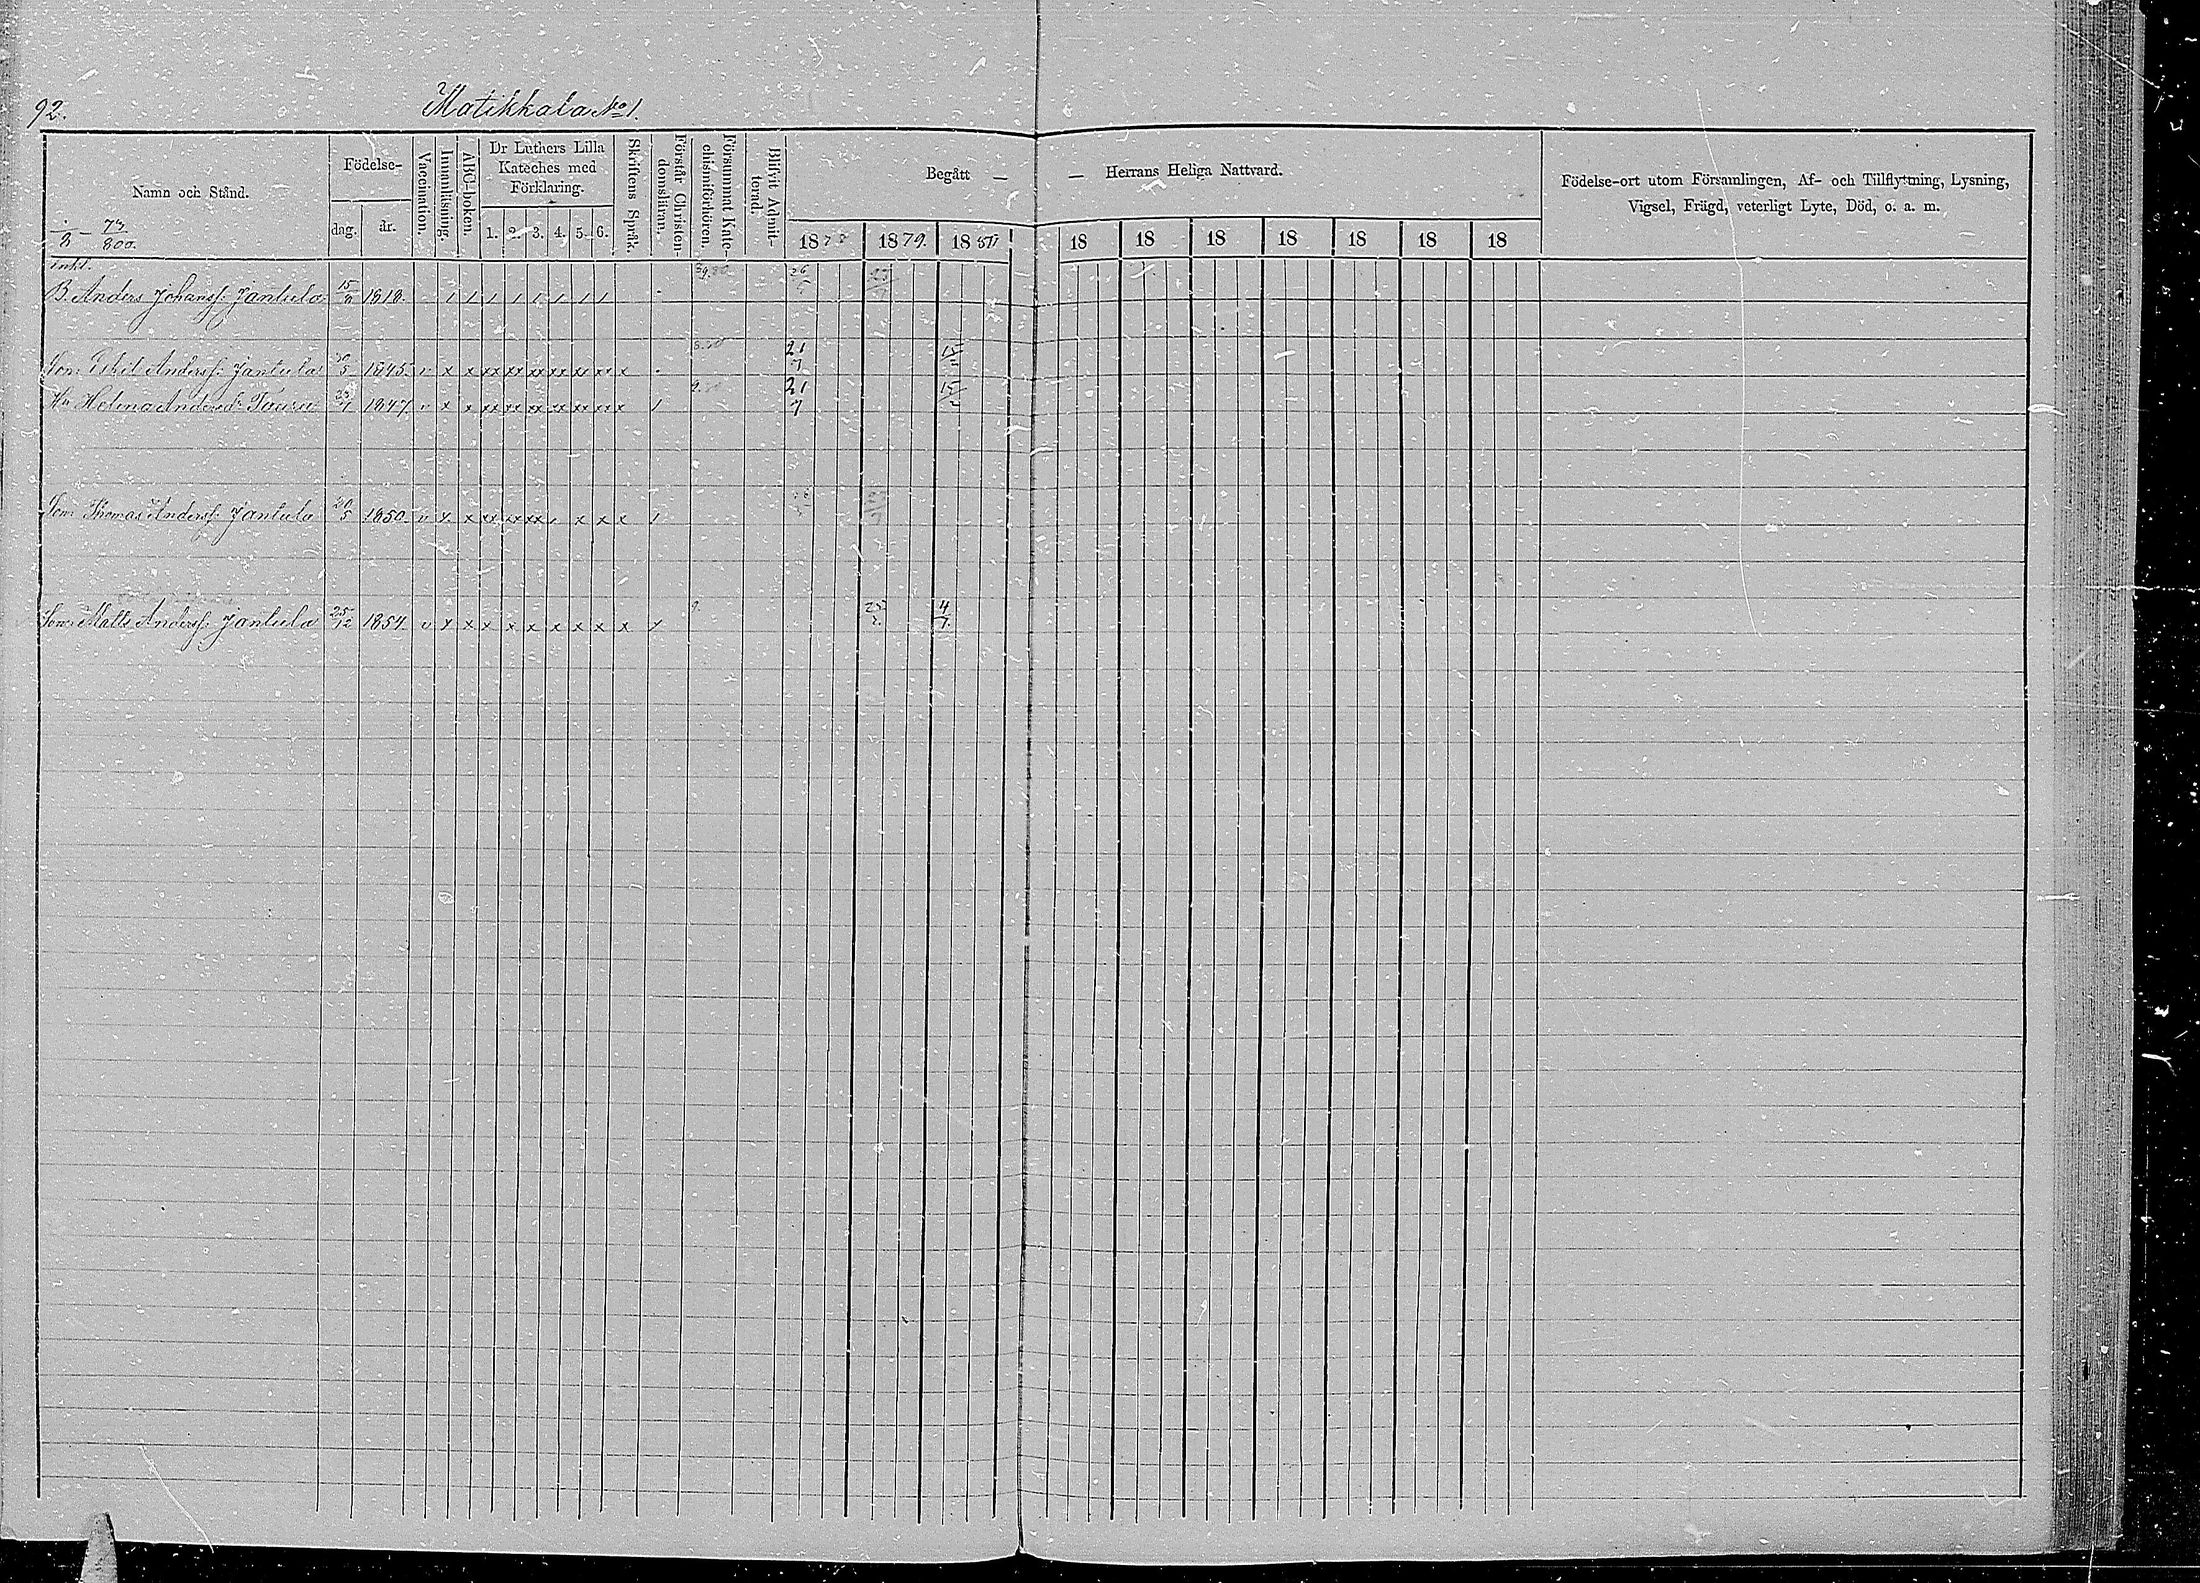 92. Matikkala No 1.
Namn och Stånd. Födelse- dag. år. Vaccination. Innanläsning. ABC-boken. Dr Luthers Lilla Kateches med Förklaring. 1. 2. 3. 4. 5. 6. Skriftens Språk. Förstår Christendomsläran. Försummat Katechismiförhören. Blifvit Admitterad.
Begått — — Herrans Heliga Nattvard.
Födelse-ort utom Församlingen, Af- och Tillflyttning, Lysning,
Vigsel, Frägd, veterligt Lyte, Död, o. a. m.
1878 1879. 1880 18 18 18 18 18 18 18
73/800.
enkl.
B. Anders Johanss: Jantula 15/8 1818. 26
Son Anderss: Jantula 30/5 1845. v x x xx xx xx xx xx xx x 21/7 15
Hu Helena Andersdr 1847. v x x xx xx xx xx xx xx x 1 21/7 15
Son Thomas Anderss: Jantula 20/5 1850. v x x xx xx xx x x x 1
Son Matts Anderss: Jantula 25/12 1854. v x x x x x x x x x x 25/2. 4/7.